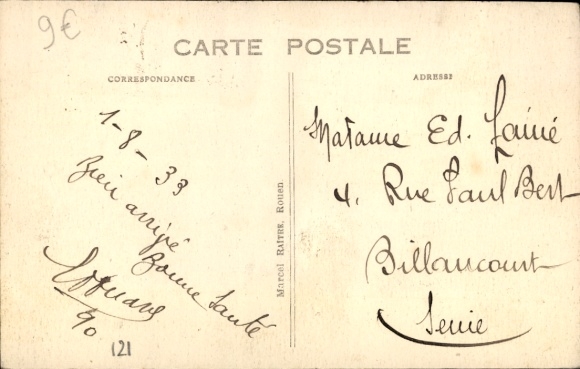 9€
CARTE POSTALE
CORRESPONDANCE
ADRESSE
1-8-33
Bien arrivé
Bonne Santé
Edouard
90
121
Marcel RAITRE, Rouen
Madame Ed. Lainé
4. Rue Paul Bert
Billancourt
Seine